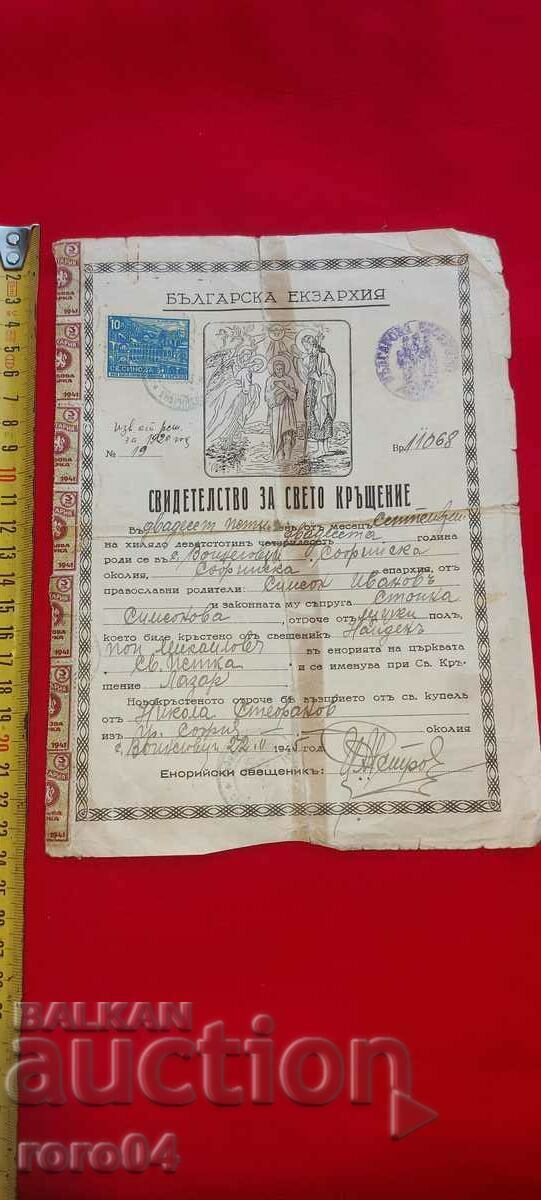 БЪЛГАРСКА ЕКЗАРХИЯ
10
БЪЛГАРСКА ЕКЗАРХИЯ
за 1920 год
№ 19
Вр. 11068
СВИДЕТЕЛСТВО ЗА СВЕТО КРЪЩЕНИЕ
Въ двадесет пети день отъ месецъ Септемврий
на хилядо деветстотинъ четиридесетъ двадесета година
роди се въ с. Войнеговци, Софийска
околия, Софийска епархия, отъ
православни родители: Симсон Ивановъ
и законната му съпруга Стойка
Симсонова, отроче отъ мужки полъ,
което биде кръстено отъ свещеникъ Найденъ
поп Михаиловъ въ енорията на църквата
Св. Петка и се именува при Св. Кръ-
щение Лазар
Новокръстеното отроче бѣ възприето отъ св. купель
отъ Никола Стефанов
изъ гр. София околия
22. 194 год.
Енорийски свещеникъ:
1941
1941
1941
1941
1941
1941
1941
BALKAN
auction
roro04